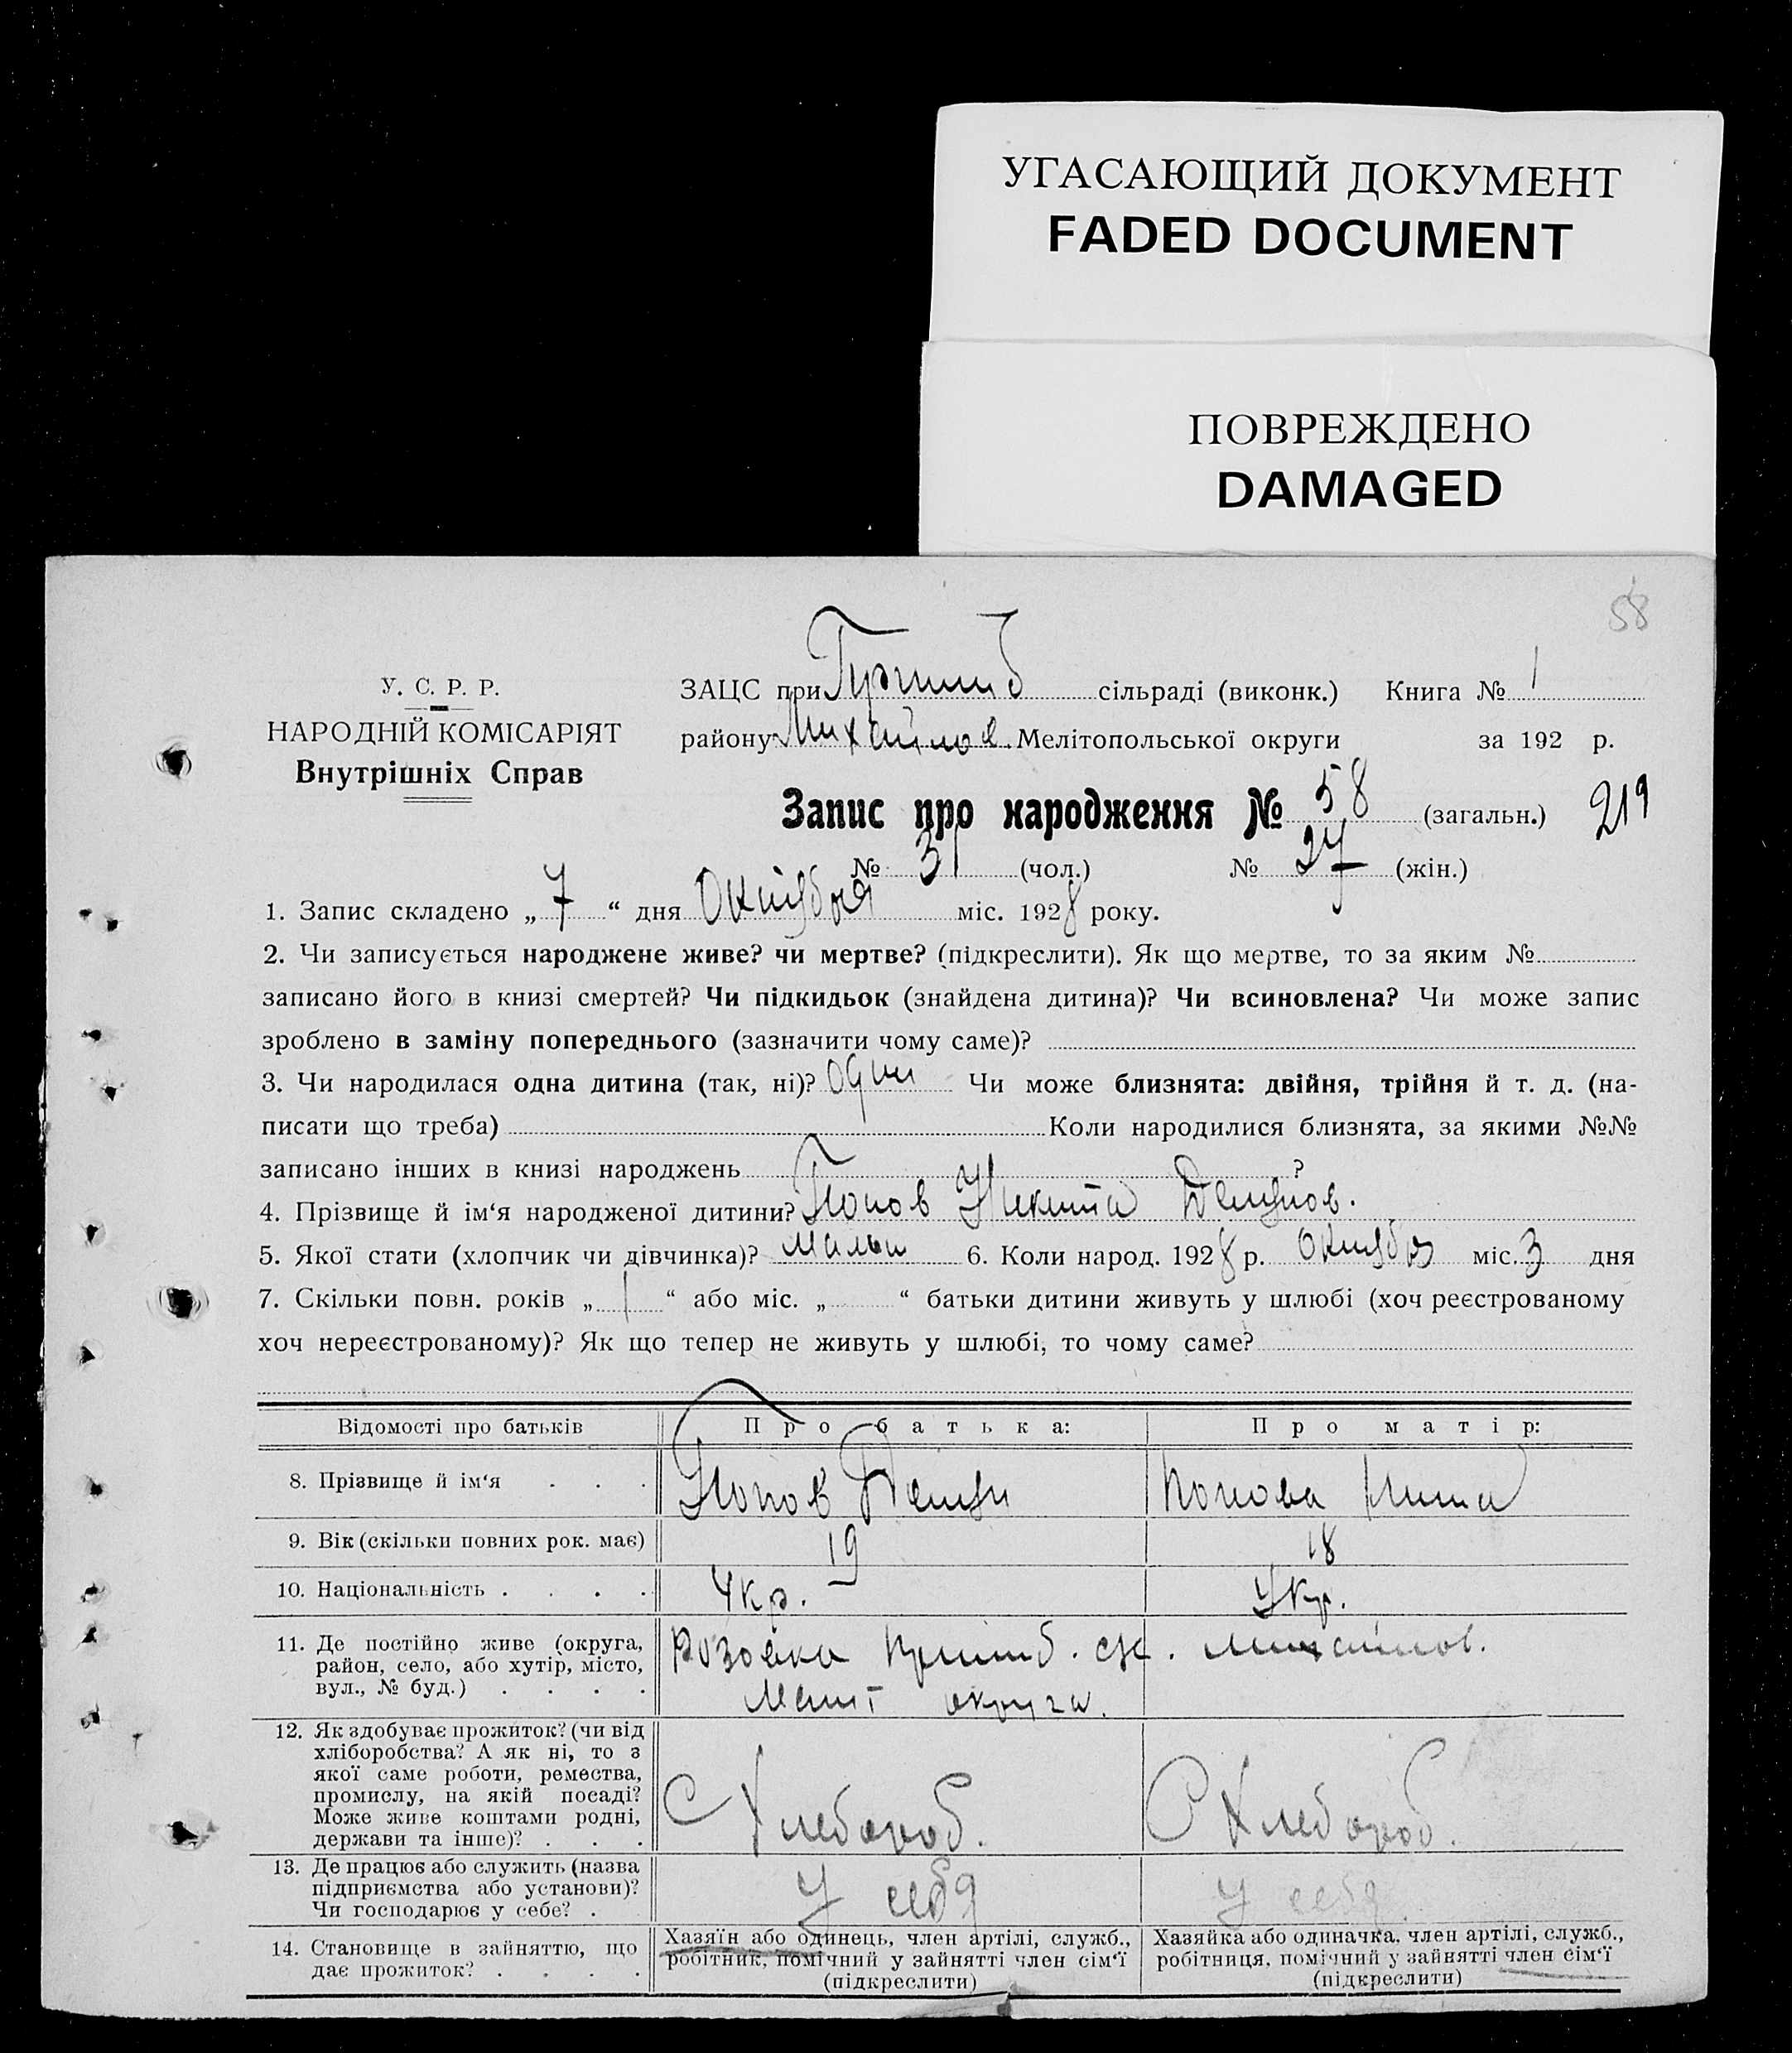 УГАСАЮЩИЙ ДОКУМЕНТ
FADED DOCUMENT
ПОВРЕЖДЕНО
DAMAGED
58
У. С. Р. Р.
НАРОДНІЙ КОМІСАРІЯТ
Внутрішніх Справ
ЗАЦС при сільраді (виконк.) Книга № 1
району Михайлов. Мелітопольської округи за 192 р.
Запис про народження № 58 (загальн.) 219
№ 31 (чол.) № 27 (жін.)
1. Запис складено „ 7 “ дня Октября міс. 1928 року.
2. Чи записується народжене живе? чи мертве? (підкреслити). Як що мертве, то за яким №
записано його в книзі смертей? Чи підкидьок (знайдена дитина)? Чи всиновлена? Чи може запис
зроблено в заміну попереднього (зазначити чому саме)?
3. Чи народилася одна дитина (так, ні)? один Чи може близнята: двійня, трійня й т. д. (на-
писати що треба) Коли народилися близнята, за якими №№
записано інших в книзі народжень ?
4. Прізвище й ім‘я народженої дитини? Попов Никита
5. Якої стати (хлопчик чи дівчинка)? 6. Коли народ. 1928 р. Октября міс. 3 дня
7. Скільки повн. років „ 1 “ або міс. „ “ батьки дитини живуть у шлюбі (хоч реєстрованому
хоч нереєстрованому)? Як що тепер не живуть у шлюбі, то чому саме?
Відомості про батьків Про батька: Про матір:
8. Прізвище й ім‘я . . . Попов Попова
9. Вік (скільки повних рок. має) 19 18
10. Національність . . . . Укр. Укр.
11. Де постійно живе (округа,
район, село, або хутір, місто,
вул., № буд.) . . . .
Розовка Пришиб. с/с. Михайлов.
Мелит округа.
12. Як здобуває прожиток? (чи від
хліборобства? А як ні, то з
якої саме роботи, ремества,
промислу, на якій посаді?
Може живе коштами родні,
держави та інше)? . . .
С Хлебороб. С Хлебороб.
13. Де працює або служить (назва
підприємства або установи)?
Чи господарює у себе? .
У себя У себя.
14. Становище в зайняттю, що
дає прожиток? . . . .
Хазяїн або одинець, член артілі, служб.,
робітник, помічний у зайнятті член сім‘ї
(підкреслити)
Хазяйка або одиначка, член артілі, служб.,
робітниця, помічний у зайнятті член сім‘ї
(підкреслити)